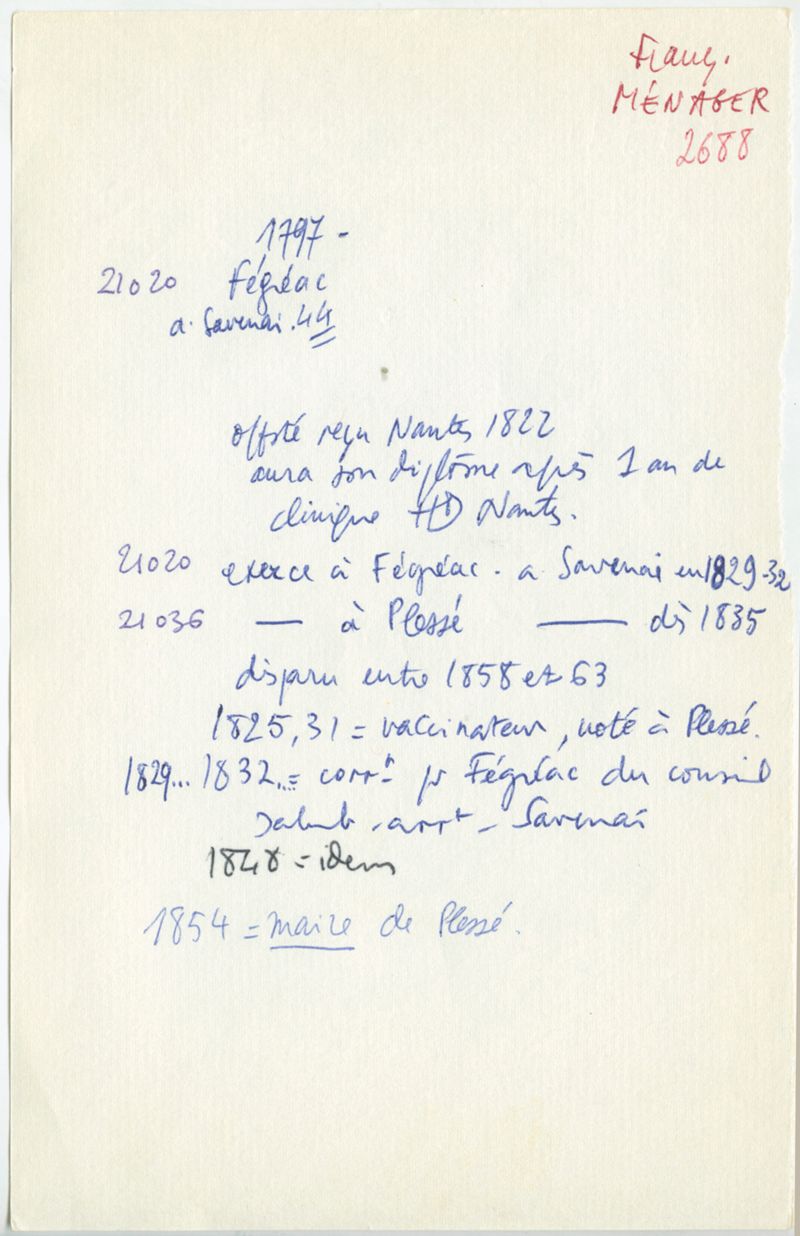 Franç.
MÉNAGER
2688
1797 -
21020 Fégréac
a. Savenai. 44
offsté reçu Nantes 1822
aura son diplôme après 1 an de
clinique HD Nantes.
21020 exerce à Fégréac - a Savenai en 1829-32
21036 — à Plessé — dès 1835
disparu entre 1858 et 63
1825, 31 = vaccinateur, noté à Plessé.
1829... 1832... = corrt pr Fégréac du conseil
salub - arrt - Savenai
1848 = idem
1854 = maire de Plessé.